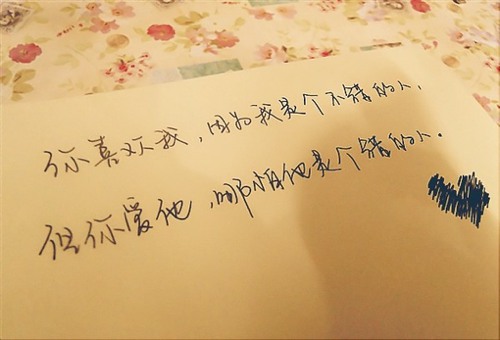 你喜欢我,因为我是个不错的人,
但你爱他,哪怕他是个错的人。